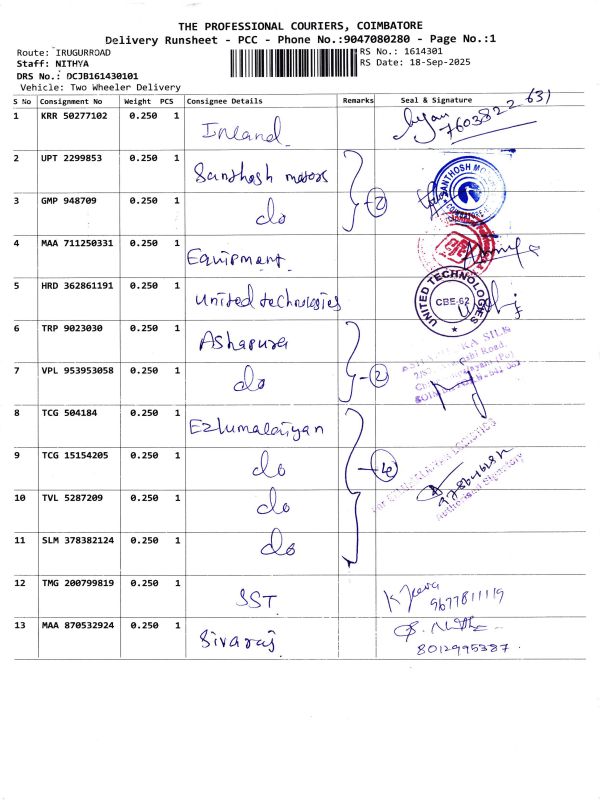 THE PROFESSIONAL COURIERS, COIMBATORE
Delivery Runsheet - PCC - Phone No.:9047080280 - Page No.:1
Route: IRUGURROAD
RS No.: 1614301
Staff: NITHYA
RS Date: 18-Sep-2025
DRS No.: DCJB161430101
Vehicle: Two Wheeler Delivery
S No Consignment No Weight PCS Consignee Details Remarks Seal & Signature
1 KRR 50277102 0.250 1 Inland
2 UPT 2299853 0.250 1 Santhosh motors
3 GMP 948709 0.250 1 do 2
SANTHOSH MO
4 MAA 711250331 0.250 1 Equipment
5 HRD 362861191 0.250 1 United technologies
UNITED TECHNOLOGIES
CBE-62
6 TRP 9023030 0.250 1 Ashapura
7 VPL 953953058 0.250 1 do 2
8 TCG 504184 0.250 1 Ezhumalaiyan
9 TCG 15154205 0.250 1 do 4
Authorised Signatory
10 TVL 5287209 0.250 1 do
11 SLM 378382124 0.250 1 do
12 TMG 200799819 0.250 1 SST
9677811119
13 MAA 870532924 0.250 1 Sivaraj
8012995387